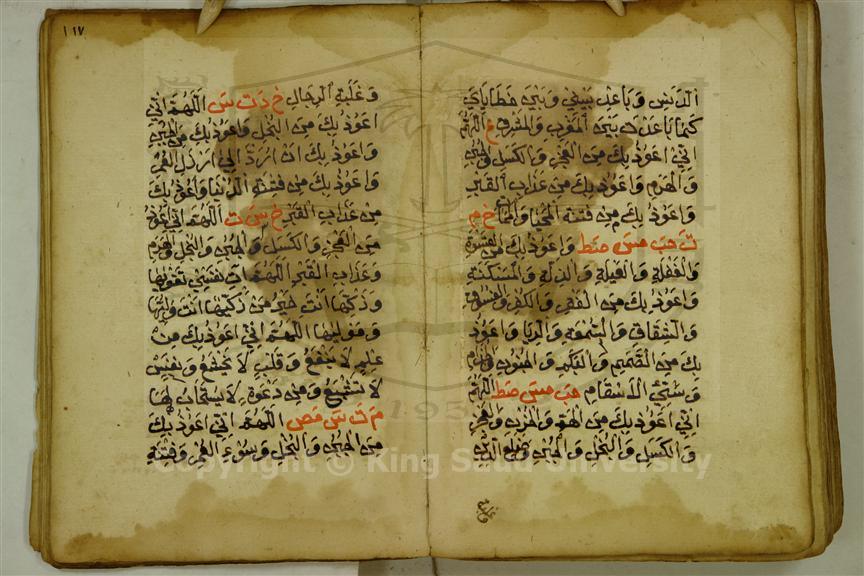 الدنس وباعد بيني وبين خطاياي
كما باعدت بين المغرب والمشرق م اللهم
اني اعوذ بك من العجز والكسل والجبن
والهرم واعوذ بك من عذاب القبر
واعوذ بك من فتنة المحيا والممات خ م
ت حب مس صط واعوذ بك من القسوة
والغفلة والعيلة والذلة والمسكنة
واعوذ بك من الفقر والكفر والفسوق
والشقاق والسمعة والريا واعوذ
بك من الصمم والبكم والجنون والجذام
وسيئ الاسقام حب مس صط اللهم
اني اعوذ بك من الهم والحزن والعجز
والكسل والبخل والجبن وضلع الدين
وغلبة
١١٧
وغلبة الرجال خ د ت س اللهم اني
اعوذ بك من البخل واعوذ بك من الجبن
واعوذ بك ان ارد الى ارذل العمر
واعوذ بك من فتنة الدنيا واعوذ بك
من عذاب القبر خ س ت اللهم اني اعوذ
من العجز والكسل والجبن والبخل والهرم
وعذاب القبر اللهم ات نفسي تقوىها
وزكها انت خير من زكيها انت وليها
ومولىها اللهم اني اعوذ بك من
علم لا ينفع وقلب لا يخشع ونفس
لا تشبع ومن دعوة لا يستجاب لها
م ت س مص اللهم اني اعوذ بك
من الجبن والبخل وسوء العمر وفتنة
195
Copyright © King Saud University